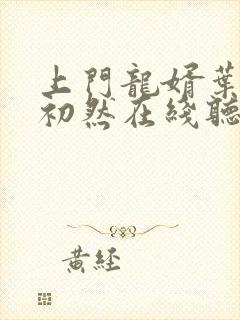 上門龍婿葉
初然在綫聽
黃經